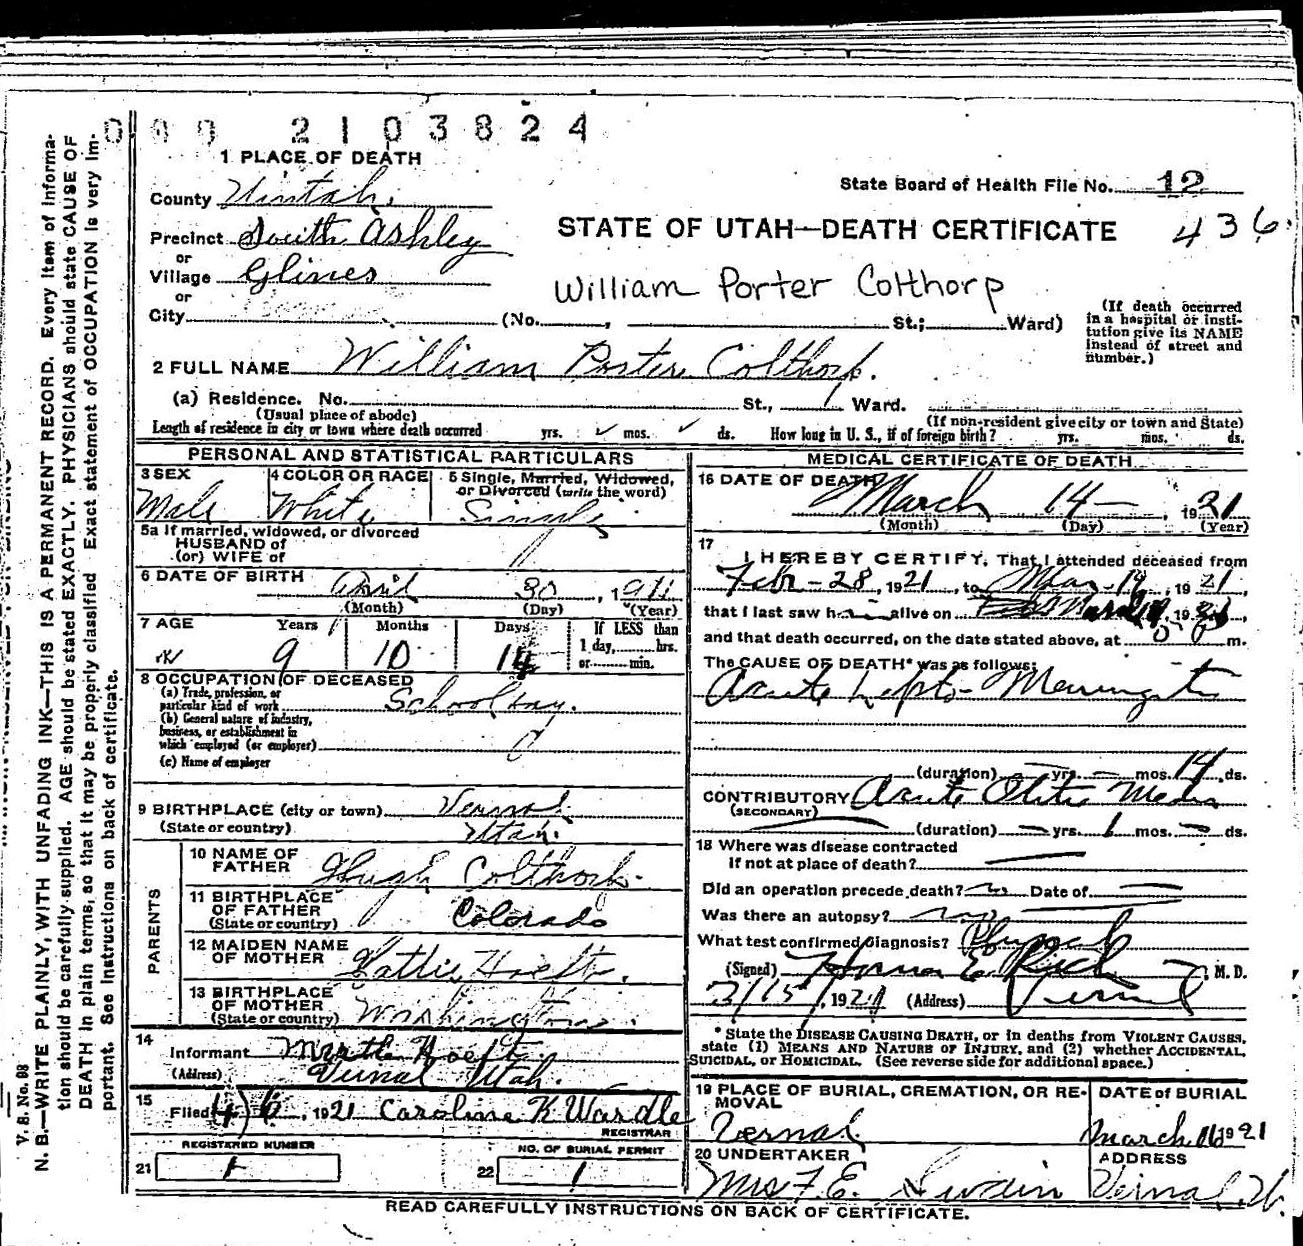 000 2103824
1 PLACE OF DEATH
County Uintah.
State Board of Health File No. 12
Precinct South Ashley
STATE OF UTAH—DEATH CERTIFICATE 436
or
Village Glines
William Porter Colthorp
or
City (No. , St.; Ward)
(If death occurred in a hospital or insti-
tution give its NAME
instead of street and
number.)
2 FULL NAME William Porter Colthorp.
(a) Residence. No. St., Ward.
(Usual place of abode) (If non-resident give city or town and State)
Length of residence in city or town where death occurred yrs. mos. ds. How long in U. S., if of foreign birth? yrs. mos. ds.
PERSONAL AND STATISTICAL PARTICULARS
3 SEX 4 COLOR OR RACE 5 Single, Married, Widowed,
or Divorced (write the word)
Male White Single
5a If married, widowed, or divorced
HUSBAND of
(or) WIFE of
6 DATE OF BIRTH April 30, 1911
(Month) (Day) (Year)
7 AGE Years Months Days If LESS than
1 day, hrs.
or min.
9 10 14
8 OCCUPATION OF DECEASED
(a) Trade, profession, or
particular kind of work School boy.
(b) General nature of industry,
business, or establishment in
which employed (or employer)
(c) Name of employer
9 BIRTHPLACE (city or town) Vernal
(State or country) Utah.
PARENTS
10 NAME OF
FATHER Hugh Colthorp.
11 BIRTHPLACE
OF FATHER Colorado
(State or country)
12 MAIDEN NAME
OF MOTHER Hoeft.
13 BIRTHPLACE
OF MOTHER Washington.
(State or country)
14
Informant Myrtle Hoeft
(Address) Vernal Utah.
15
Filed 4/6, 1921 Caroline K Wardle
REGISTRAR
REGISTERED NUMBER NO. OF BURIAL PERMIT
21 1 22 1
MEDICAL CERTIFICATE OF DEATH
16 DATE OF DEATH March 14, 1921
(Month) (Day) (Year)
17
I HEREBY CERTIFY, That I attended deceased from
Febr-28, 1921, to Mar-14, 1921,
that I last saw him alive on 19
and that death occurred, on the date stated above, at m.
The CAUSE OF DEATH* was as follows:
Acute Lepto-Meningitis
(duration) yrs. mos. 14 ds.
CONTRIBUTORY Acute Otitis Media
(SECONDARY)
(duration) yrs. 1 mos. ds.
18 Where was disease contracted
if not at place of death?
Did an operation precede death? no Date of
Was there an autopsy? no
What test confirmed diagnosis?
(Signed) Homer E. Rich, M. D.
3/15, 1921 (Address) Vernal
* State the DISEASE CAUSING DEATH, or in deaths from VIOLENT CAUSES,
state (1) MEANS AND NATURE OF INJURY, and (2) whether ACCIDENTAL,
SUICIDAL, or HOMICIDAL. (See reverse side for additional space.)
19 PLACE OF BURIAL, CREMATION, OR RE-
MOVAL
Vernal
DATE of BURIAL
March 16, 1921
20 UNDERTAKER
Mrs F. E. Swain
ADDRESS
Vernal, Ut.
READ CAREFULLY INSTRUCTIONS ON BACK OF CERTIFICATE.
V. S. No. 98
N. B.—WRITE PLAINLY, WITH UNFADING INK—THIS IS A PERMANENT RECORD. Every item of informa-
tion should be carefully supplied. AGE should be stated EXACTLY. PHYSICIANS should state CAUSE OF
DEATH in plain terms, so that it may be properly classified. Exact statement of OCCUPATION is very im-
portant. See instructions on back of certificate.